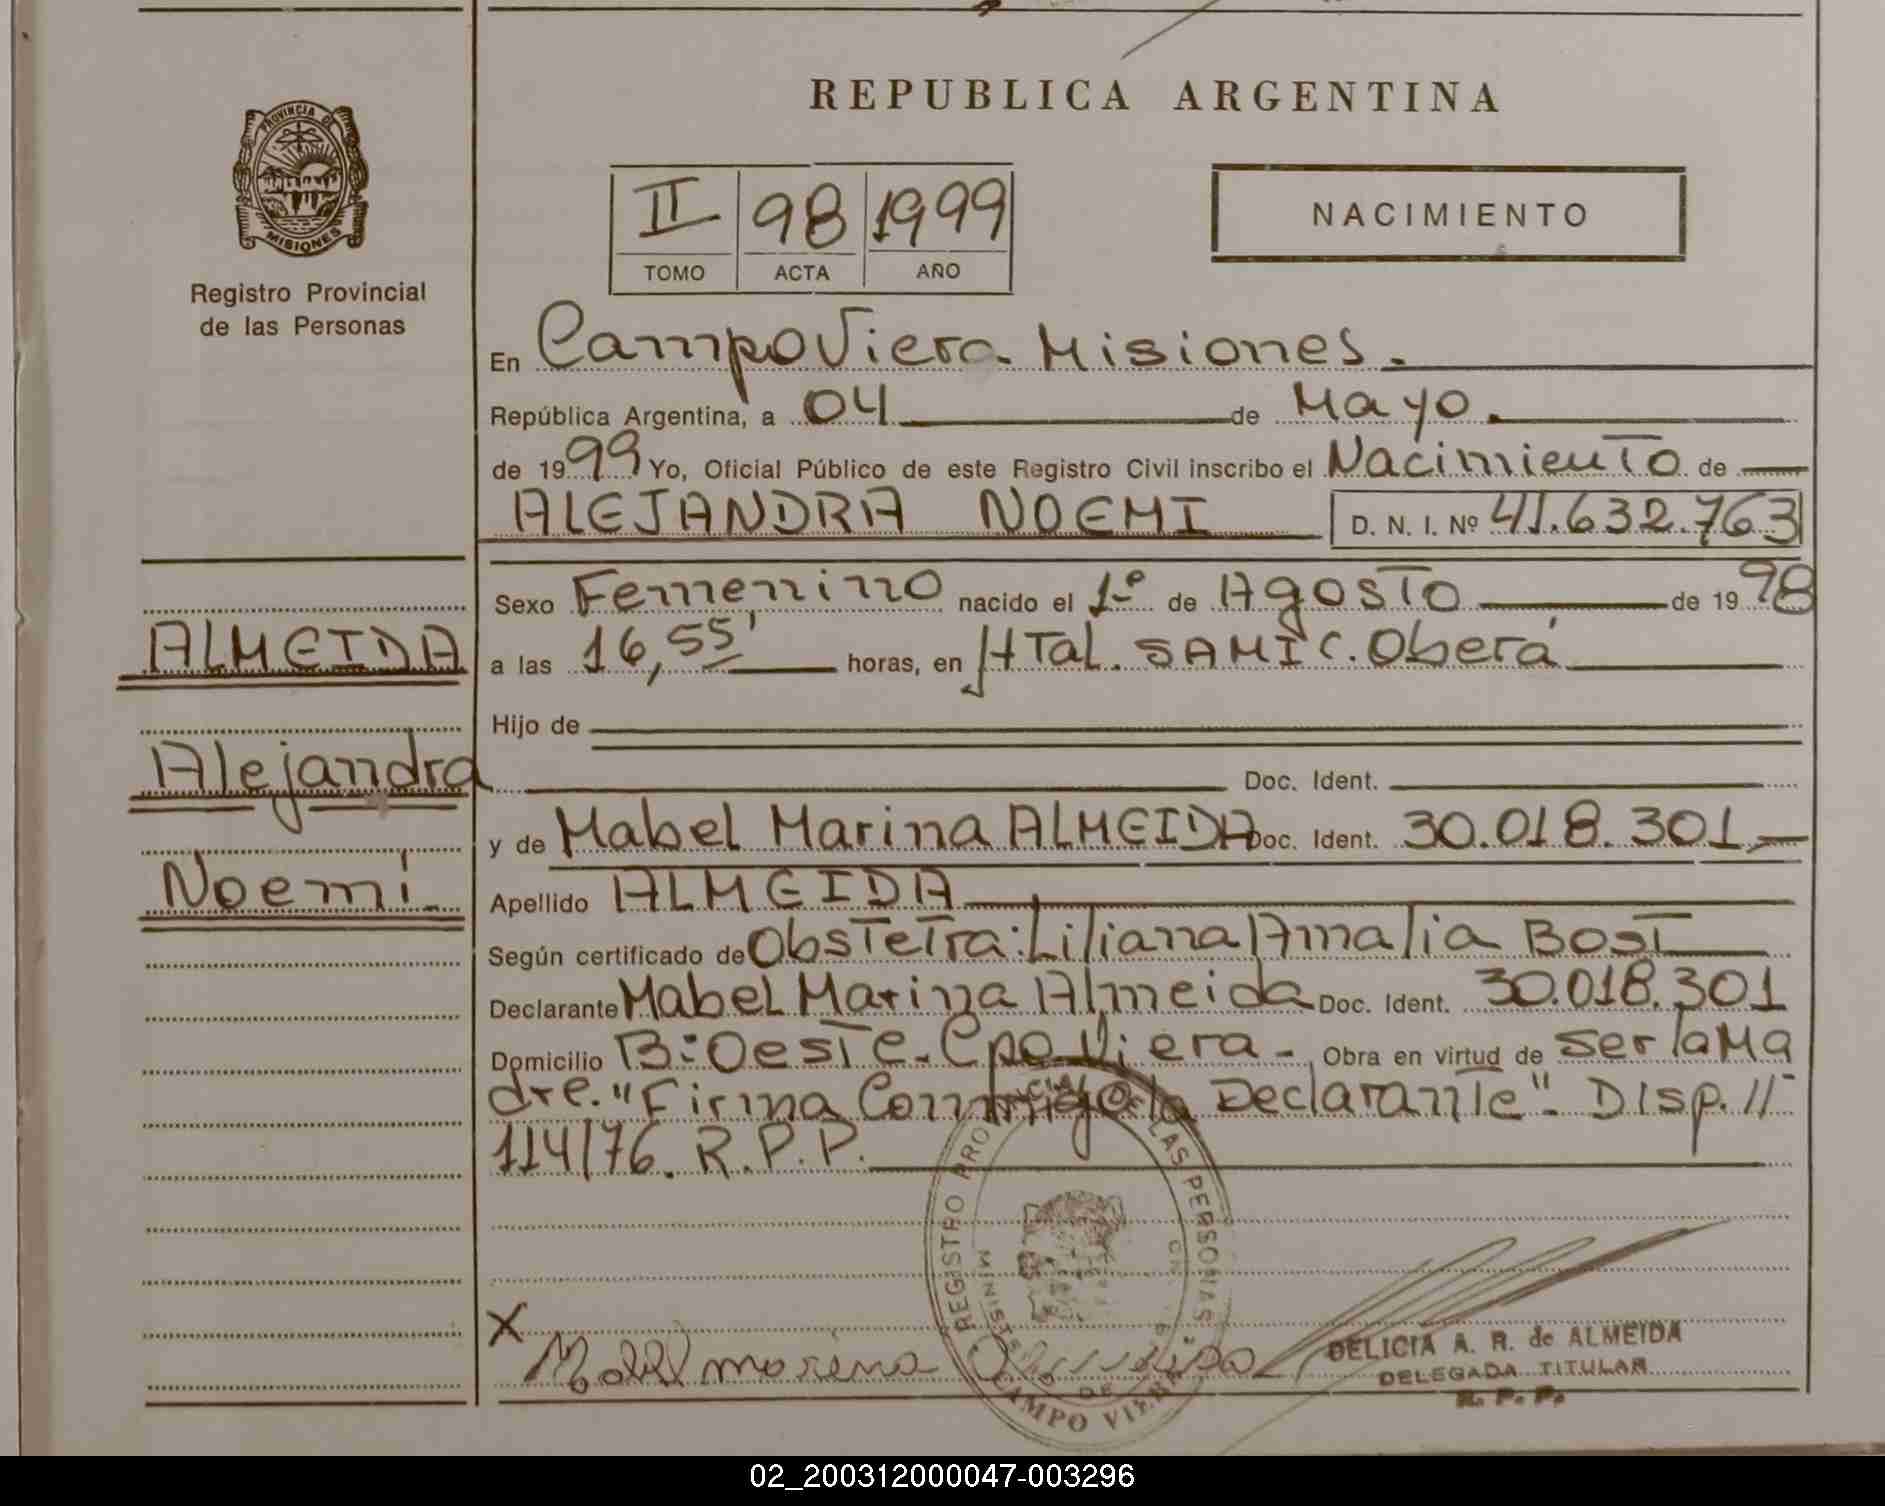 REPUBLICA ARGENTINA
PROVINCIA DE
MISIONES
Registro Provincial
de las Personas
II 98 1999
TOMO ACTA AÑO
NACIMIENTO
En Campo Viera Misiones.
República Argentina, a 04 de Mayo.
de 1999 Yo, Oficial Público de este Registro Civil inscribo el Nacimiento de
ALEJANDRA NOEMI D. N. I. Nº 41.632.763
Sexo Femenino nacido el 1º de Agosto de 1998
ALMEIDA
a las 16,55' horas, en HTal. SAMIC. Oberá
Hijo de
Alejandra
Doc. Ident.
y de Mabel Marina ALMEIDA Doc. Ident. 30.018.301
Noemí
Apellido ALMEIDA
Según certificado de Obstetra: Liliana Amalia Bost
Declarante Mabel Marina Almeida Doc. Ident. 30.018.301
Domicilio B: Oeste. Cpo Viera - Obra en virtud de ser la Ma
dre. "Firma Conmigo la Declarante". Disp. II
114/76. R.P.P.
REGISTRO PROVINCIAL DE LAS PERSONAS
CAMPO VIERA
X
Mabel marina
DELICIA A. R. de ALMEIDA
DELEGADA TITULAR
R. P. P.
02_200312000047-003296